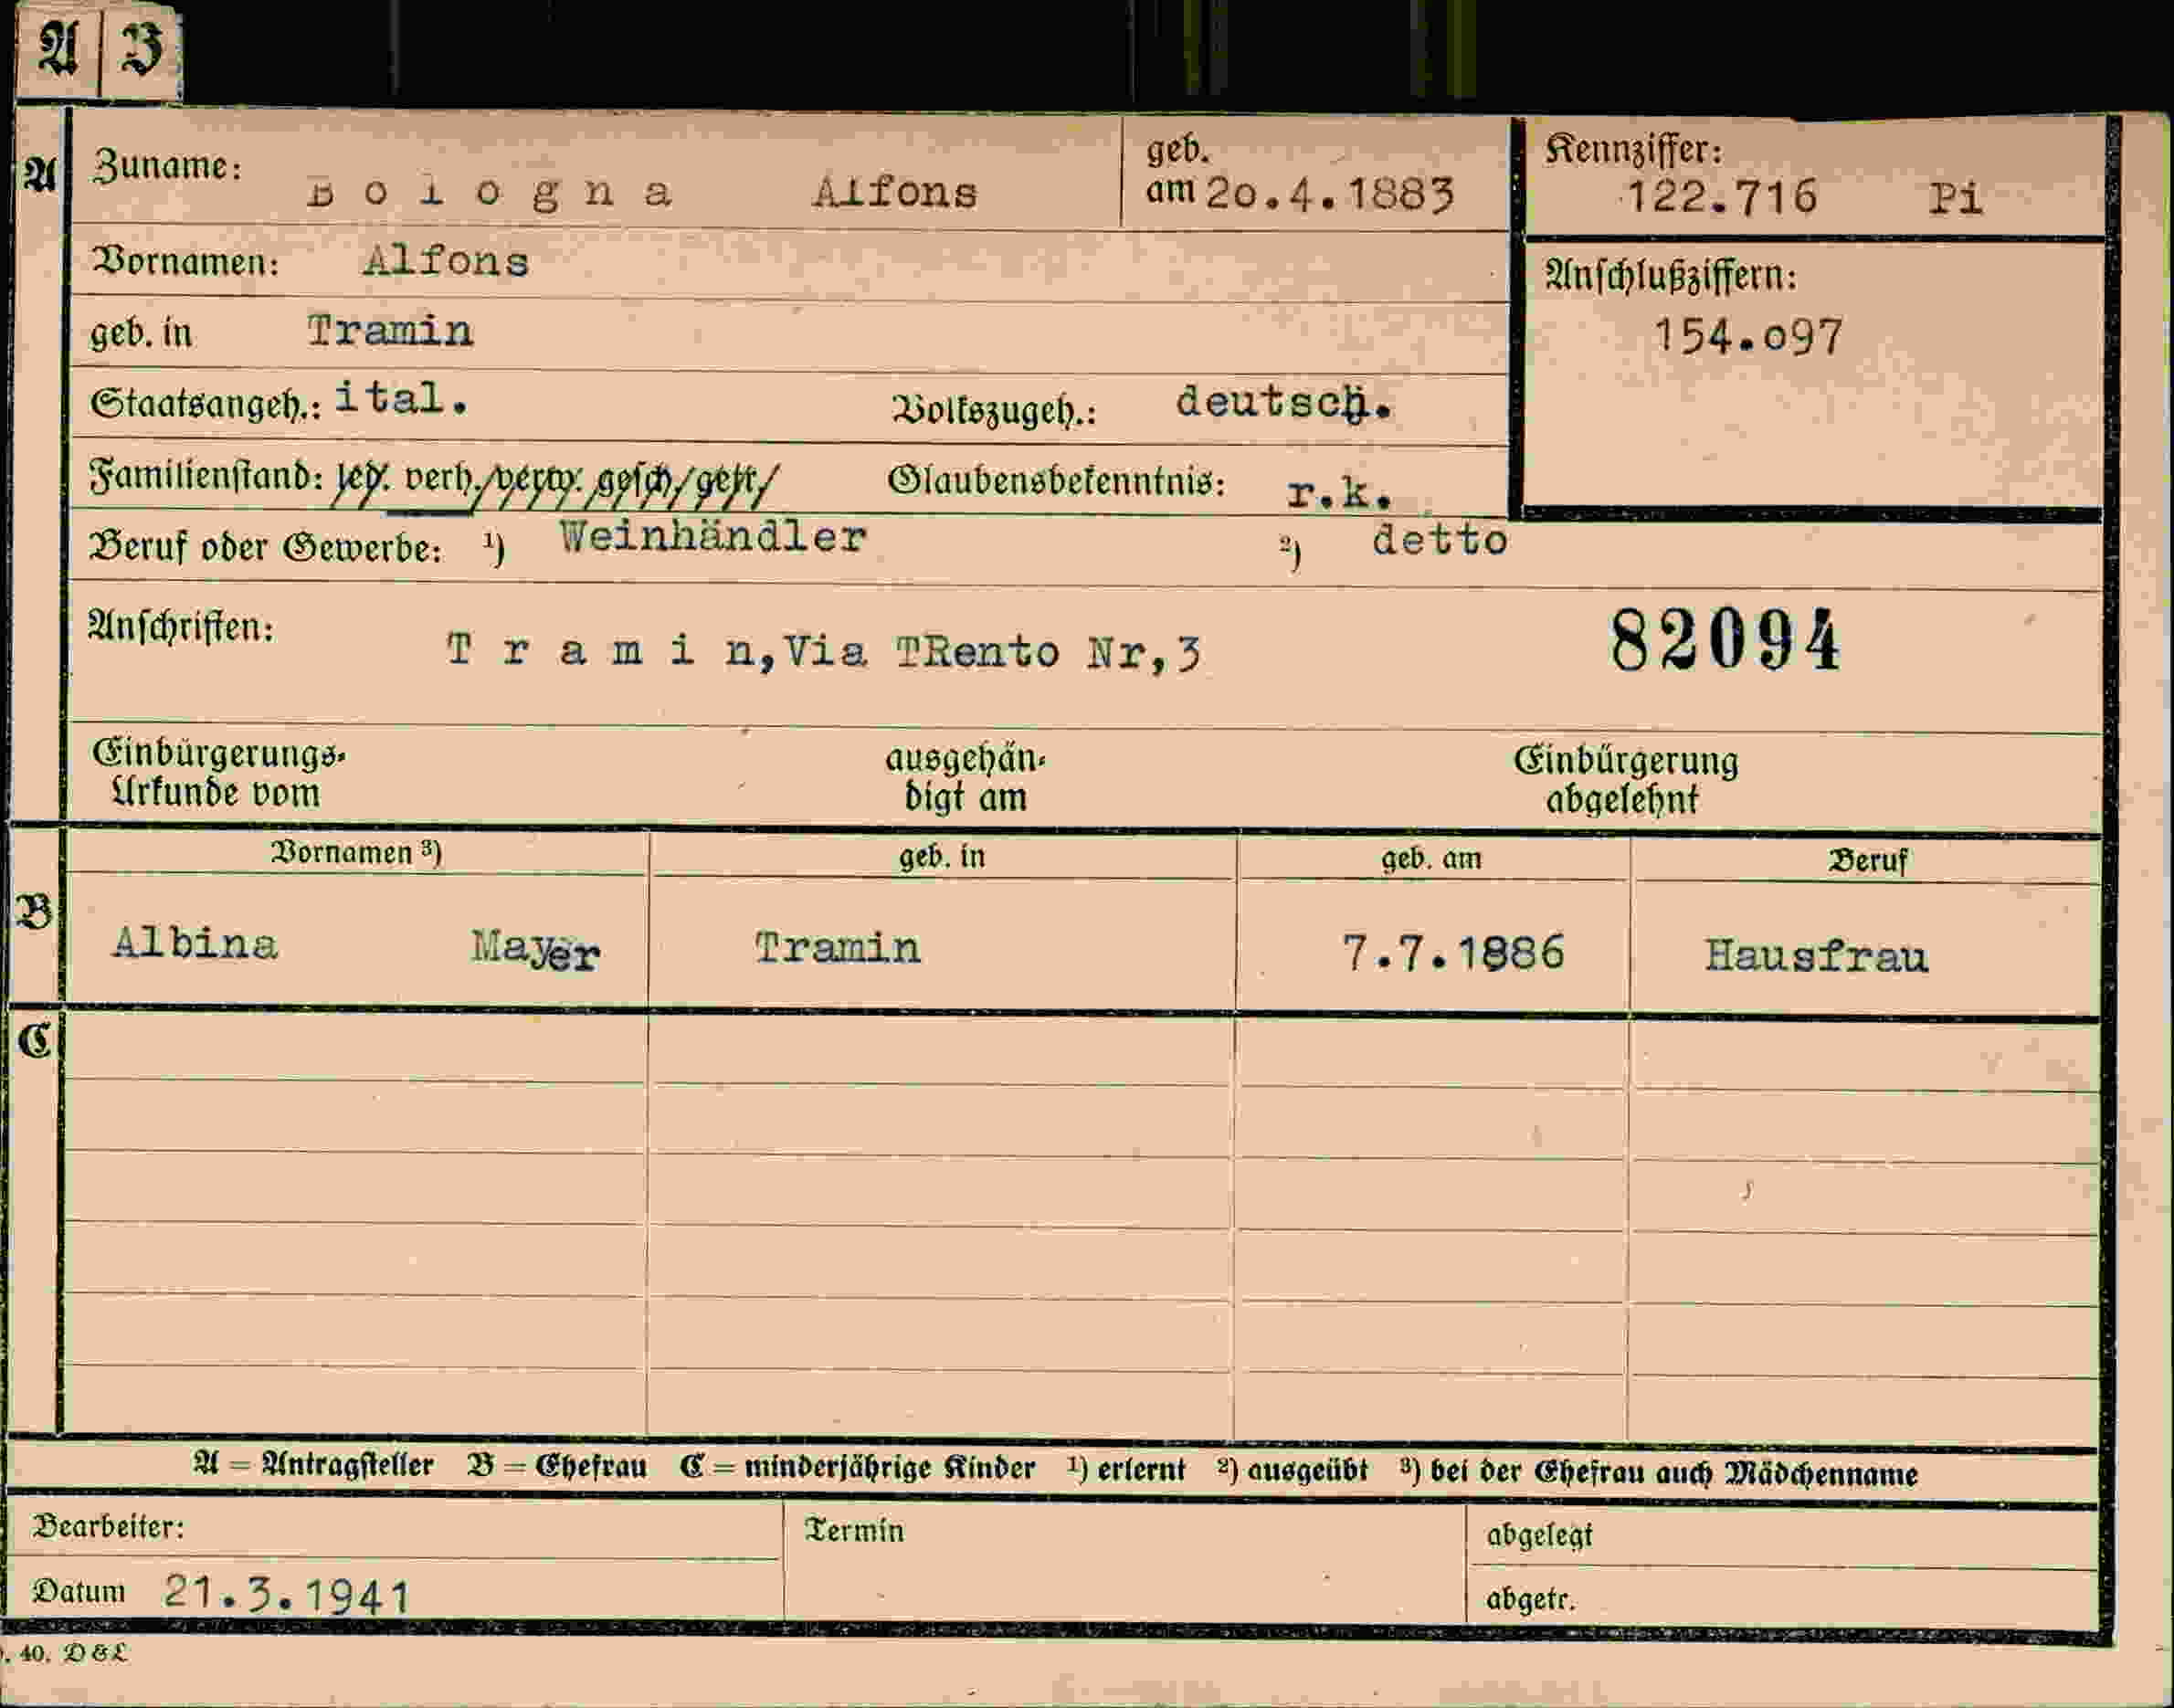 A B
A Zuname: B o l o g n a Alfons geb. am 2o.4.1883 Kennziffer: 122.716 Pi
Vornamen: Alfons
Anschlußziffern: 154.o97
geb. in Tramin
Staatsangeh.: ital. Volkszugeh.: deutsch.
Familienstand: led. verh./verw. gesch/getr/ Glaubensbekenntnis: r.k.
Beruf oder Gewerbe: ¹) Weinhändler ²) detto
Anschriften: T r a m i n,Via TRento Nr,3 82094
Einbürgerungs- ausgehän- Einbürgerung
Urkunde vom digt am abgelehnt
Vornamen ³) geb. in geb. am Beruf
B Albina Mayer Tramin 7.7.1886 Hausfrau
C
A = Antragsteller B = Ehefrau C = minderjährige Kinder ¹) erlernt ²) ausgeübt ³) bei der Ehefrau auch Mädchenname
Bearbeiter: Termin abgelegt
Datum 21.3.1941 abgetr.
. 40. D & L